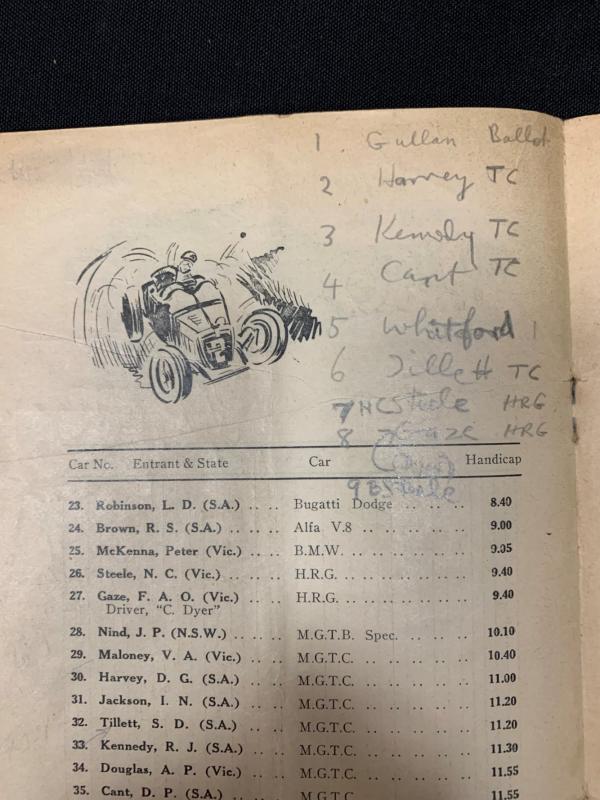 1 Gullan Ballot
2 Harvey TC
3 Kennedy TC
4 Cant TC
5 Whitford
6 Tillett TC
7 NC Steele HRG
8 Gaze HRG
(Dyer)
9 B Steele
Car No. Entrant & State Car Handicap
23. Robinson, L. D. (S.A.) .. .. Bugatti Dodge .. .. .. .. 8.40
24. Brown, R. S. (S.A.) .. .. .. Alfa V.8 .. .. .. .. .. 9.00
25. McKenna, Peter (Vic.) .. .. B.M.W. .. .. .. .. .. .. 9.05
26. Steele, N. C. (Vic.) .. .. .. H.R.G. .. .. .. .. .. .. 9.40
27. Gaze, F. A. O. (Vic.) .. .. H.R.G. .. .. .. .. .. .. 9.40
Driver, "C. Dyer"
28. Nind, J. P. (N.S.W.) .. .. .. M.G.T.B. Spec. .. .. .. 10.10
29. Maloney, V. A. (Vic.) .. .. M.G.T.C. .. .. .. .. .. 10.40
30. Harvey, D. G. (S.A.) .. .. M.G.T.C. .. .. .. .. .. 11.00
31. Jackson, I. N. (S.A.) .. .. M.G.T.C. .. .. .. .. .. 11.20
32. Tillett, S. D. (S.A.) .. .. M.G.T.C. .. .. .. .. .. 11.20
33. Kennedy, R. J. (S.A.) .. .. M.G.T.C. .. .. .. .. .. 11.30
34. Douglas, A. P. (Vic.) .. .. M.G.T.C. .. .. .. .. .. 11.55
35. Cant, D. P. (S.A.) .. .. .. M.G.T.C. .. .. .. .. .. 11.55